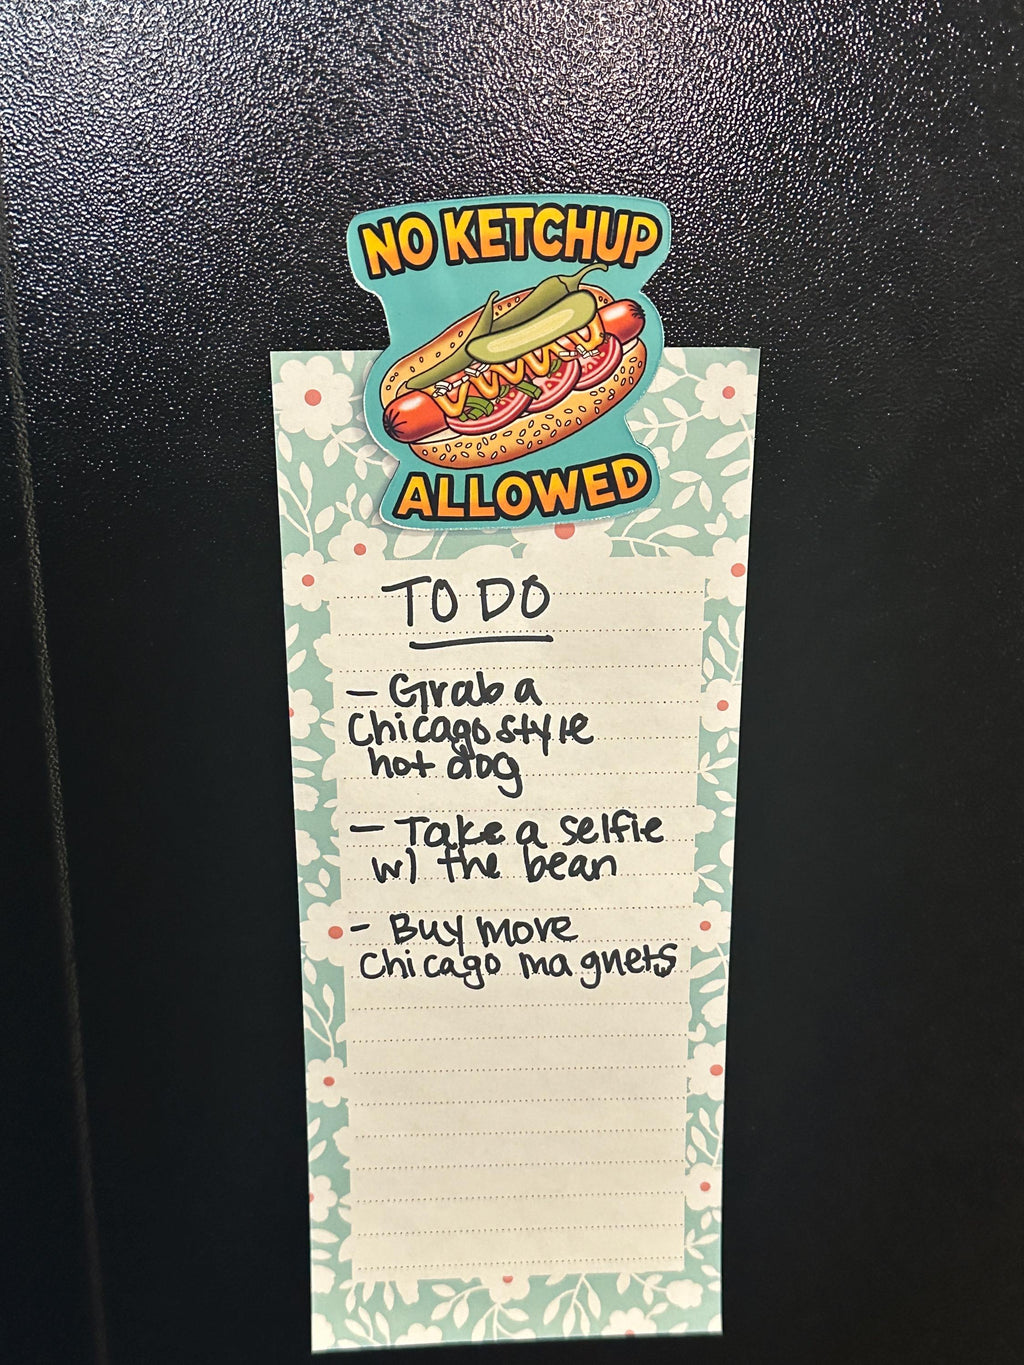 NO KETCHUP
ALLOWED
TO DO
- Grab a
Chicago style
hot dog
- Take a selfie
w/ the bean
- Buy more
Chicago magnets